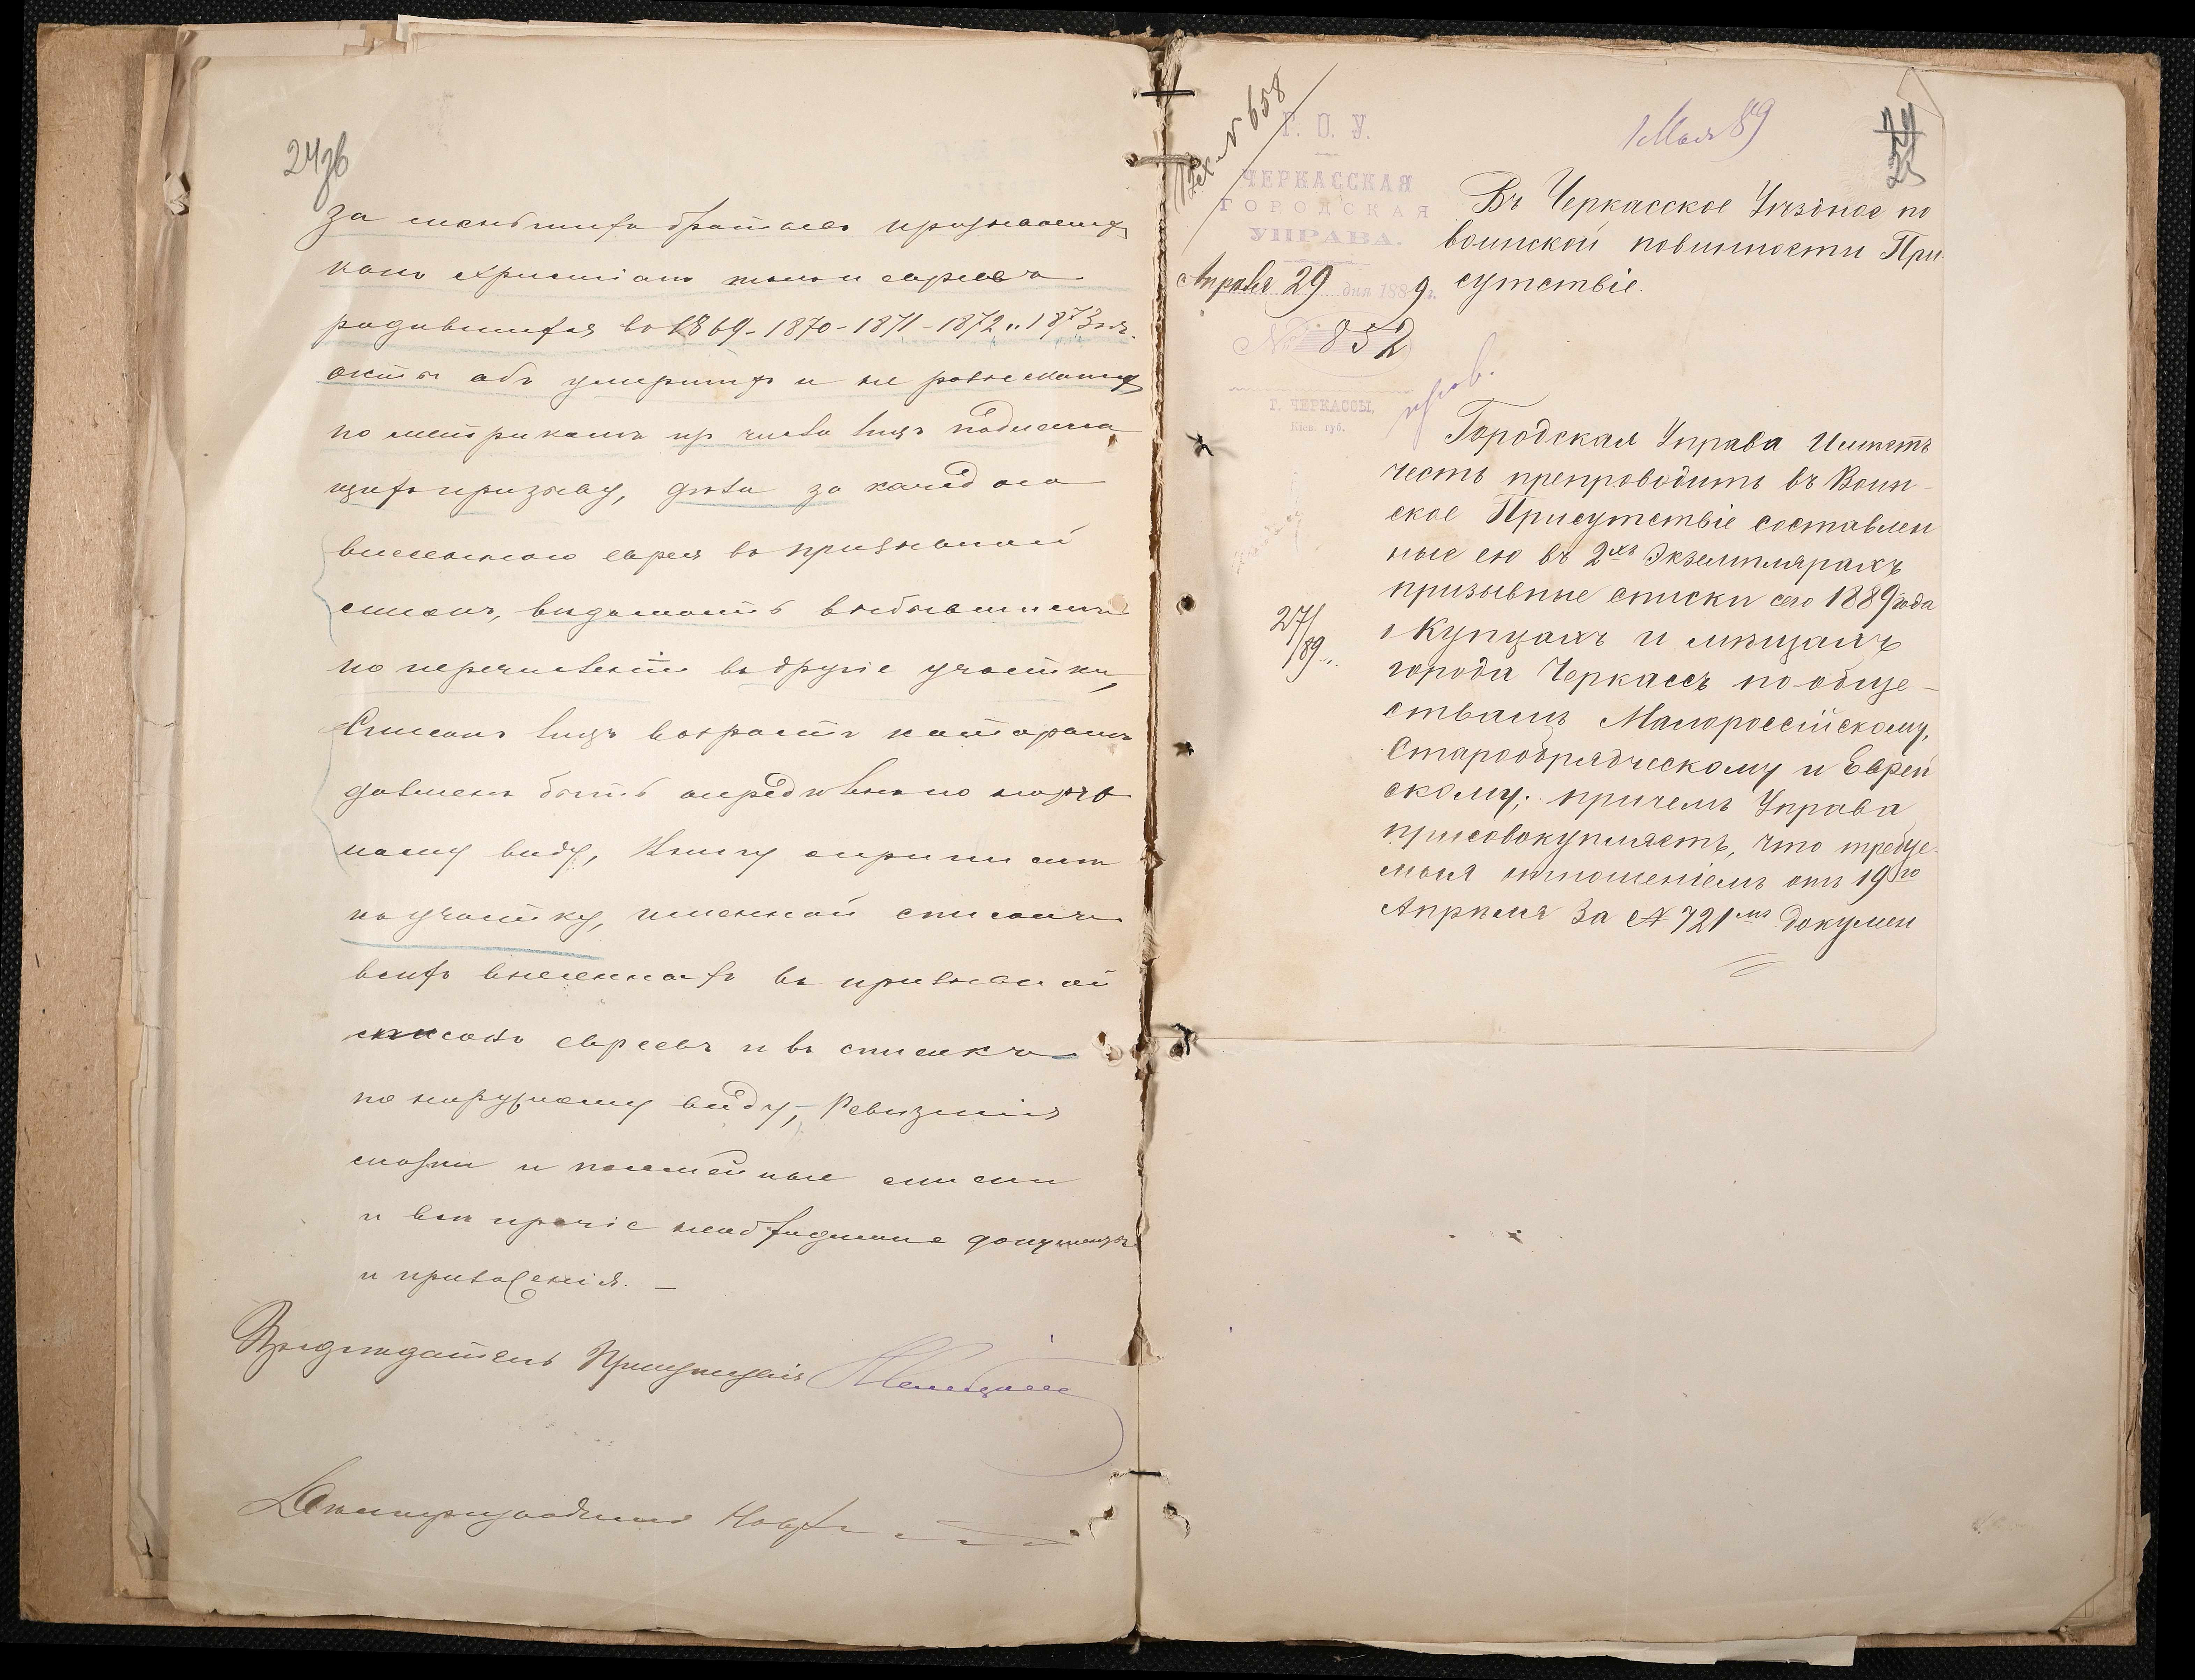 24об
за меньшихъ братьевъ призываемыхъ
какъ христіанъ такъ и евреевъ
родившихся въ 1869-1870-1871-1872 и 1873 г.г.
акты объ умершихъ и не розысканныхъ
по метрикамъ изъ числа лицъ подлежа
щихъ призыву, дѣла за каждого
внесенного еврея въ призывной
списокъ, вѣдомость выбывшимъ
по перечисленію въ другіе участки,
Списокъ лицъ возрастъ которымъ
долженъ быть опредѣленъ по наруж
ному виду, Книгу о приписк
къ участку, именной списокъ
всѣхъ внесенныхъ въ призывной
списокъ евреевъ и въ списокъ
по наружному виду, Ревизскія
сказки и посемейные списки
и всѣ прочіе необходимые документы
и приложенія. —
Предсѣдатель Присутствія
Дѣлопроизводитель
№ 658
Г. П. У.
ЧЕРКАССКАЯ
ГОРОДСКАЯ
УПРАВА.
Апрѣля 29 дня 1889 г.
№ 852
Г. ЧЕРКАССЫ,
Кіев. губ.
1 Мая 89
24
25
Въ Черкасское Уѣздное по
воинской повинности При
сутствіе.
Городская Управа Имѣетъ
честь препроводить въ Воин-
ское Присутствіе составлен
ные ею въ 2хъ Экземплярахъ
призывные списки сего 1889 года
о Купцахъ и мѣщанъ
города Черкассъ по обще-
ствамъ Малороссійскому,
Старообрядческому и Еврей
скому; причемъ Управа
присовокупляетъ, что требуе-
мыя отношеніемъ отъ 19го
Апрѣля за № 721мъ докумен
27/
/89